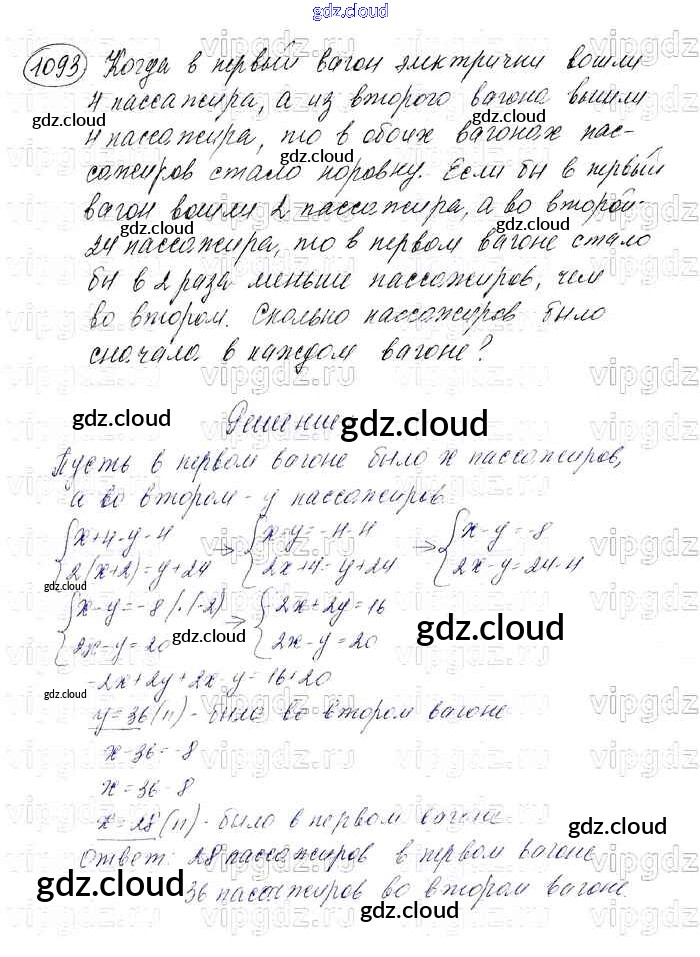 gdz.cloud
1093 Когда в первый вагон электрички вошли
4 пассажира, а из второго вагона вышли
4 пассажира, то в обоих вагонах пас-
сажиров стало поровну. Если бы в первый
вагон вошли 2 пассажира, а во второй-
24 пассажира, то в первом вагоне стало
бы в 2 раза меньше пассажиров, чем
во втором. Сколько пассажиров было
сначала в каждом вагоне?
Решение.
Пусть в первом вагоне было x пассажиров,
а во втором - y пассажиров.
{x+4=y-4 → {x-y=-4-4 → {x-y=-8
{2(x+2)=y+24 {2x+4=y+24 {2x-y=24-4
{x-y=-8 /·(-2) → {-2x+2y=16
{2x-y=20 {2x-y=20
-2x+2y+2x-y=16+20
y=36(п) - было во втором вагоне
x-36=-8
x=36-8
x=28(п) - было в первом вагоне
Ответ: 28 пассажиров в первом вагоне
36 пассажиров во втором вагоне.